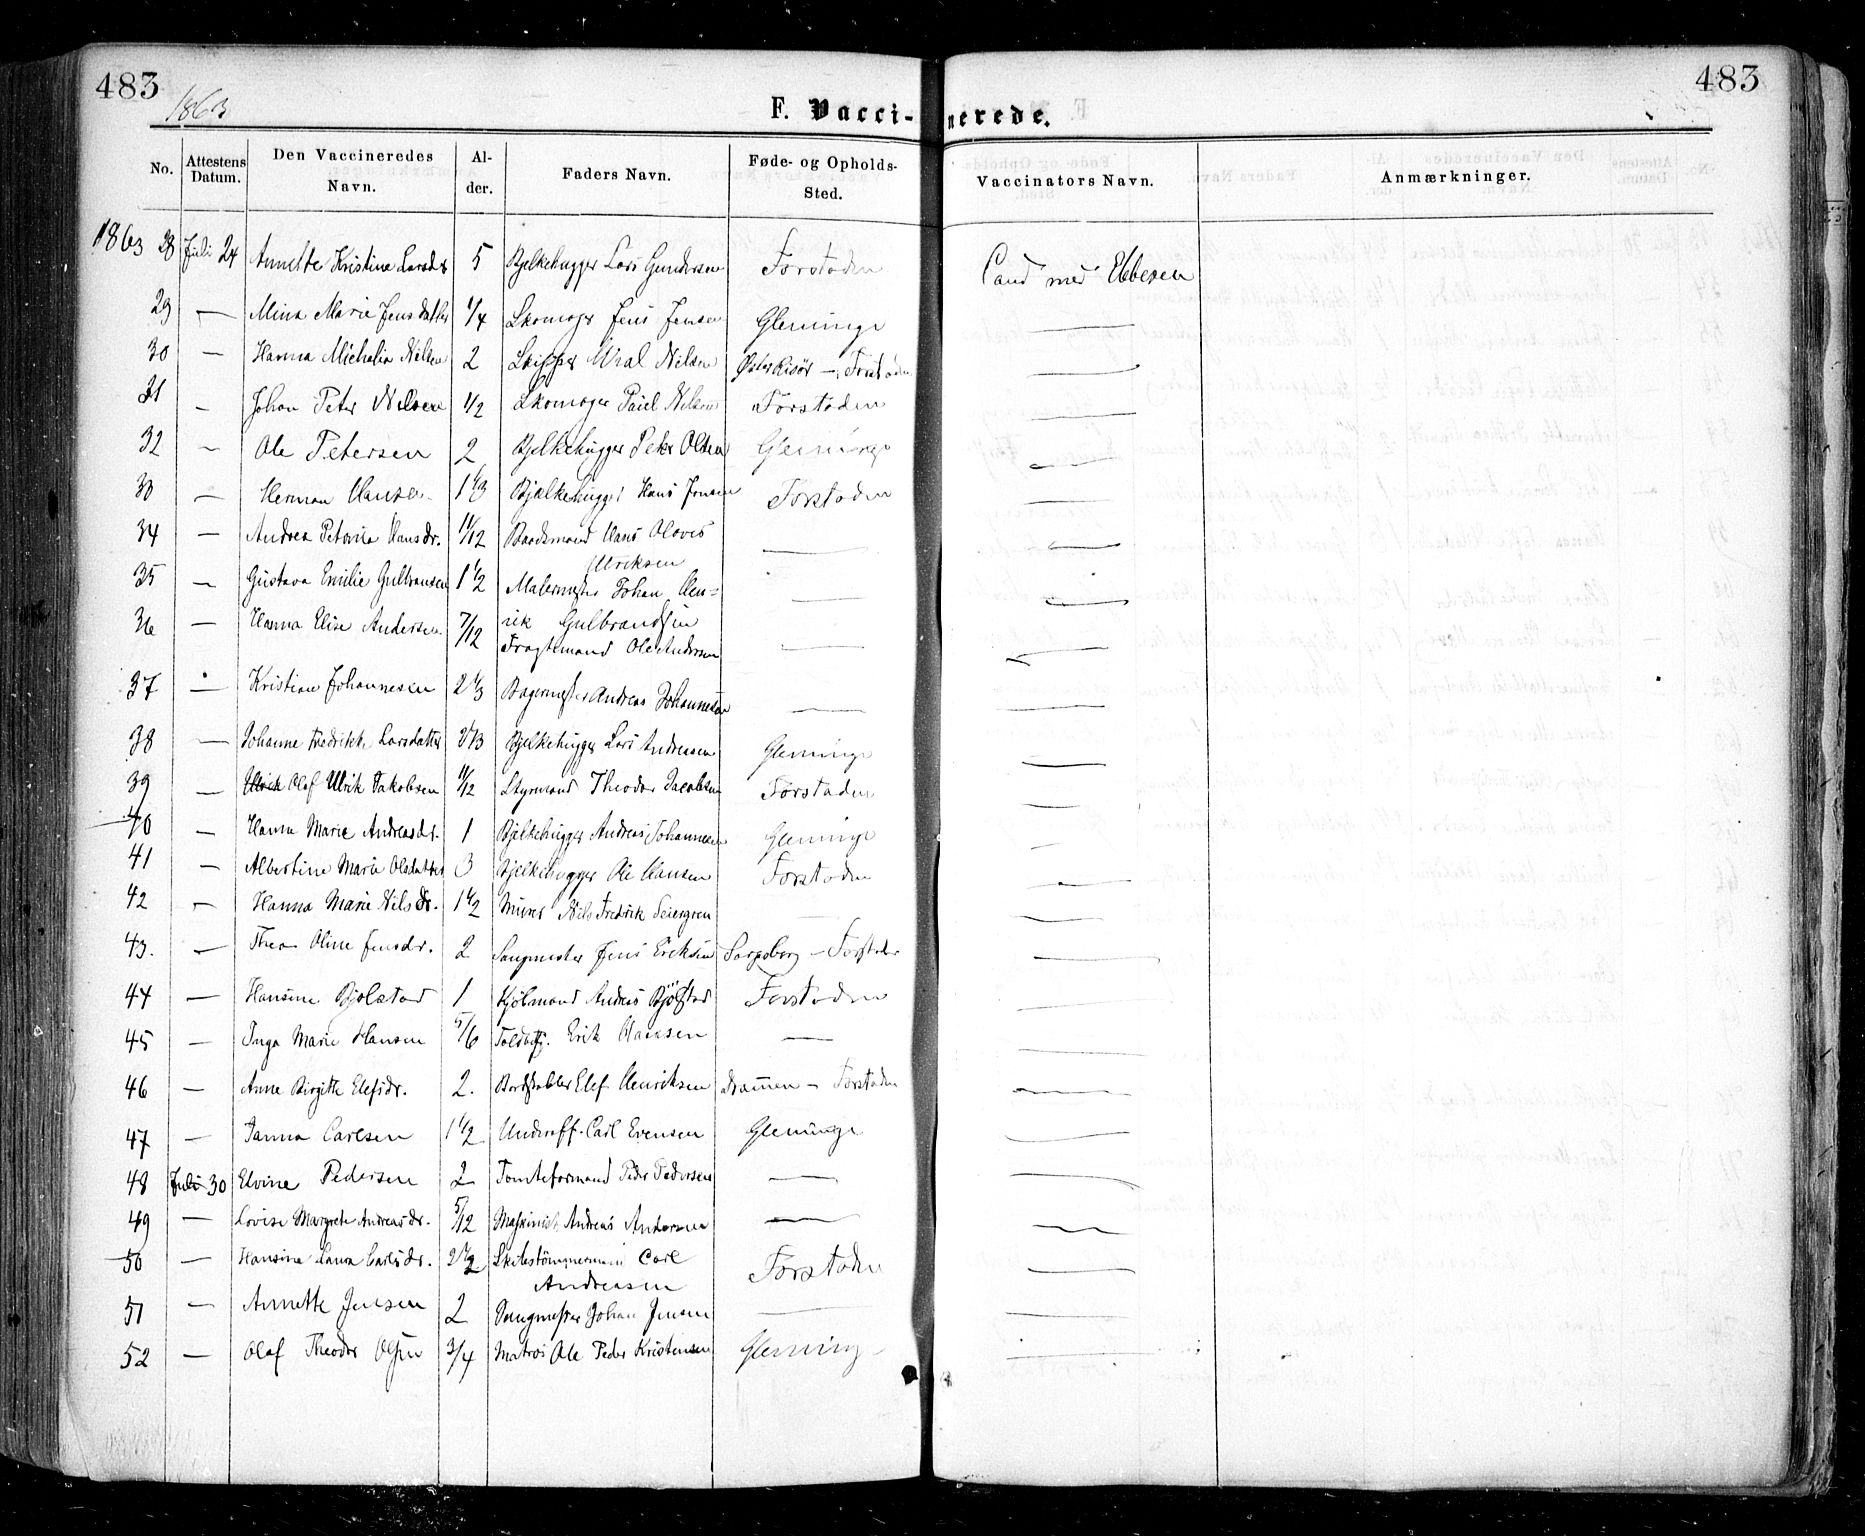 483
1863
F. Vacci-nerede.
483
No. Attestens Datum. Den Vaccineredes Navn. Al-der. Faders Navn. Føde- og Opholds-Sted. Vaccinators Navn. Anmærkninger.
1863 28 Juli 24 Annette Kristine Larsdr 5 Bjelkehugger Lars Gundersen Forstaden Cand med Ebbesen
29 — Mina Marie Jensdatter 1/4 Skomager Jens Jensen Glemminge —
30 — Hanna Michalia Nilsen 2 Skipper Nilsen Øster Risör — Forstaden —
31 — Johan Peter Nilsen 1/2 Skomager Paul Nilsen Forstaden —
32 — Ole Petersen 2 Bjelkehugger Peter Olsen Glemminge —
33 — Herman Hansen 1 1/3 Bjælkehugger Hans Jensen Forstaden —
34 — Andrea Petovia Hansdr. 11/12 Baadsmand Hans Olovis
Ulriksen — —
35 — Gustava Emilie Gulbransen 1 1/2 Malermester Johan Hen=
rik Gulbrandsen — —
36 — Hanna Elise Andersen 7/12
Fragtemand Ole Andersen — —
37 — Kristian Johannesen 2 1/3 Bagermester Andreas Johannesen — —
38 — Johanne Fredrikke Larsdatter 2 1/3 Bjelkehugger Lars Andreasen Glemminge —
39 — Ulrik Olaf Ulrik Jakobsen 11/12 Styrmand Theodor Jacobsen Forstaden —
40 — Hanna Marie Andreasdr. 1 Bjelkehugger Andreas Johannesen Glemminge —
41 — Albertine Marie Olsdatter 3 Bjelkehugger Ole Hansen Forstaden —
42 — Hanna Marie Nilsdr. 1 1/2 Murer Nils Fredrik Seiergren — —
43. — Thea Oline Jensdr. 2 Saugmester Jens Eriksen Sarpsborg — Forstaden —
44 — Hansine Bjölstad 1 Kjölmand Andreas Bjölstad Forstaden —
45 — Inga Marie Hansen 5/6 Toldbetj. Erik Hansen — —
46 — Anne Birgitte Elefsdr. 2. Bordstabler Elef Henriksen Dramen — Forstaden —
47 — Janna Carlsen 1 1/2 Underoff. Carl Evensen Glemminge —
48 Juli 30 Elvine Pedersen 2 Tomteformand Peder Pedersen — —
49 — Lovise Margrete Andreasdr. 5/12 Maskinist Andreas Andersen — —
50 — Hansine Laura Carlsdr. 2 1/2 Skibstömmermand Carl
Andreasen Forstaden —
51 — Annette Jensen 2 Saugmester Johan Jensen — —
52 — Olaf Theodor Olsen 3/4 Matros Ole Peder Kristensen Glemminge —